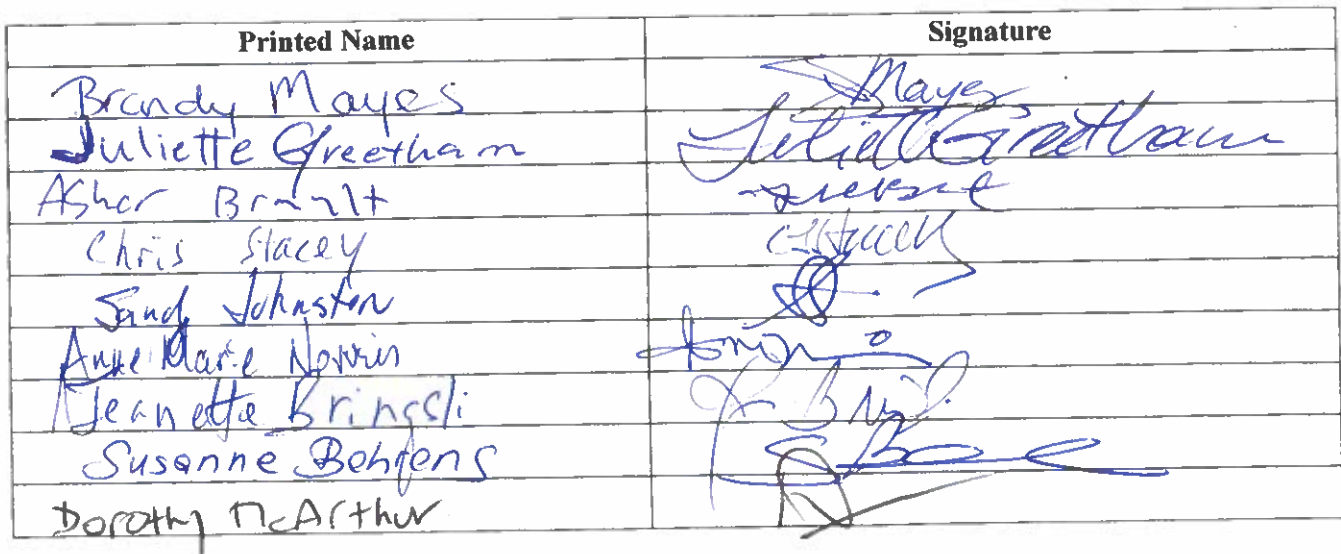 Printed Name Signature
Brandy Mayes Mayes
Juliette Greetham Juliette Greetham
Asher
Chris Stacey CStacey
Sandy Johnston
Anne Marie Norris
Jeanette
Susanne Behrens
Dorothy McArthur